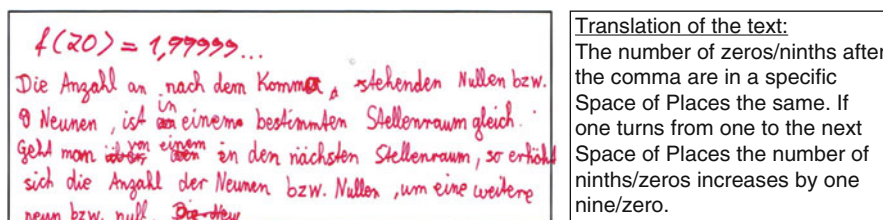 f(20) = 1,99999...
Die Anzahl an nach dem Komma, stehenden Nullen bzw.
9 Neunen, ist in einem bestimmten Stellenraum gleich.
Geht man von einem in den nächsten Stellenraum, so erhöht
sich die Anzahl der Neunen bzw. Nullen, um eine weitere
neun bzw. null. Die Neu
Translation of the text:
The number of zeros/ninths after
the comma are in a specific
Space of Places the same. If
one turns from one to the next
Space of Places the number of
ninths/zeros increases by one
nine/zero.